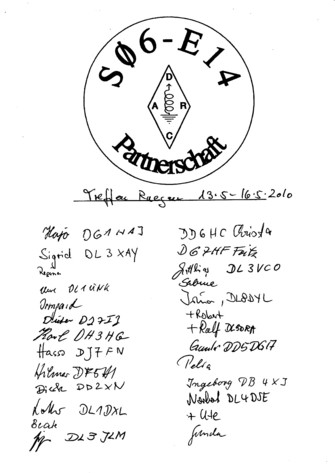 SØ6-E14
D
A R
C
Partnerschaft
Treffen Ruegen 13.5-16.5.2010
Hajo DG1NAJ
Sigrid DL3XAY
Regina
Uwe DL1UNK
Irmgard
Dieter DJ7IJ
Karl DH3HG
Hasso DJ7FN
Hilmar
DD2XN
Lothar DL1DXL
Beate
DL3JLM
DD6HC Christa
DG7HF Fritz
DL3VCO
Sabine
DL8DYL
+ Robert
+ Ralf DL8DRA
Gunter
Petra
Ingeborg DB4XJ
Norbert DL4DJE
+ Ute
Gunda